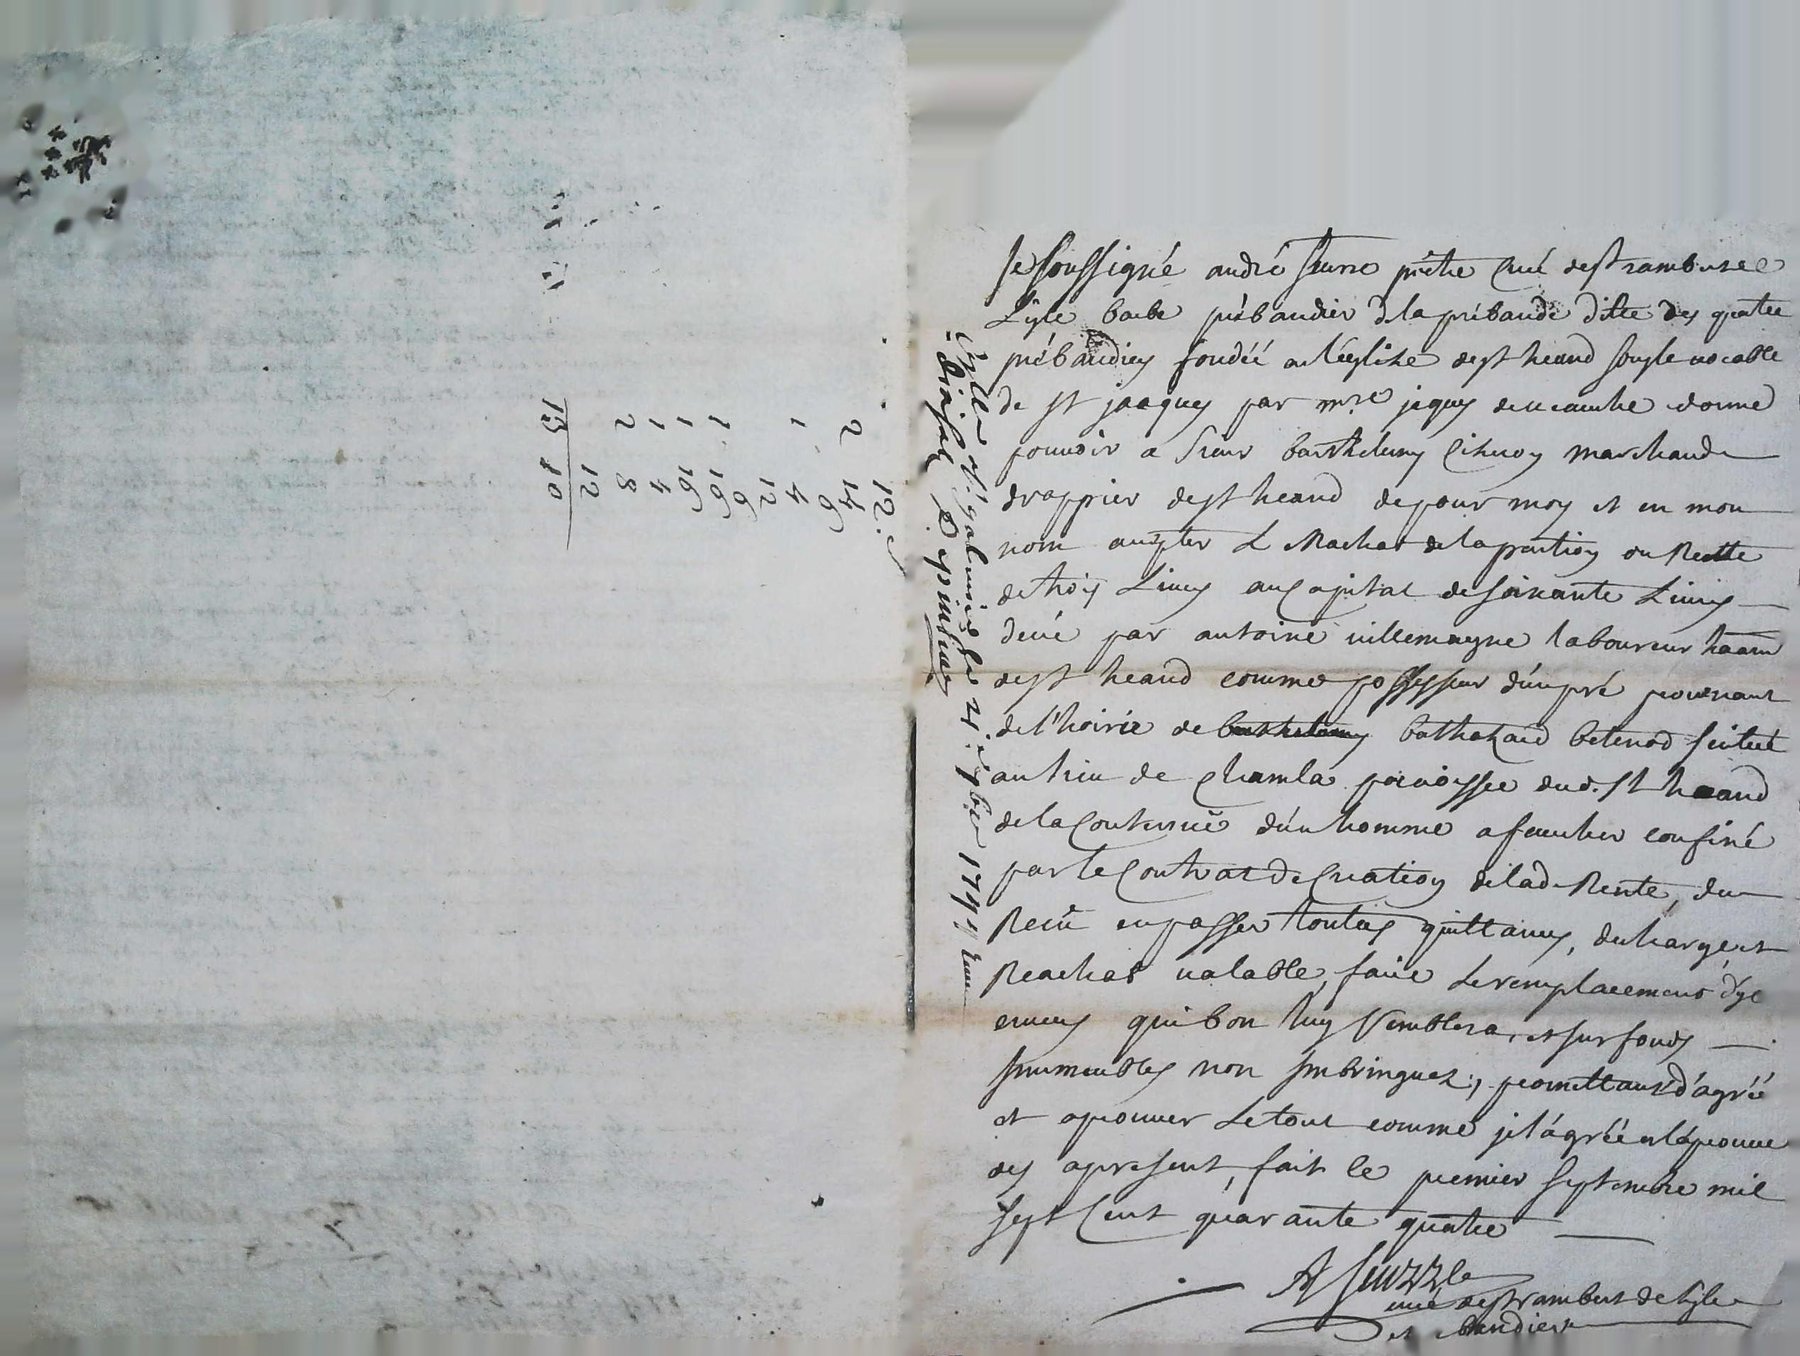 Je soussigné andré prêtre Curé de st rambert
L'yle barbe prébandier de la prébande ditte des quatre
prébandiers fondéé en l'églize de st heand sous le vocable
de st jaques par mre jaques donne
pouvoir a sieur barthelemy marchand
drappier de st heand de pour moy et en mon
nom accepter le Rachat de la pention ou Rente
de trois Livres au Capital de soixante Livres
deüe par antoine villemagne laboureur
de st heand comme possesseur d'un pré provenant
de l'hoirie de barthelemy balthazard betenod scitué
au lieu de Chamla paroisse dud. st heand
de la Contenüe d'un homme a faucher confiné
par le Contrat de Création de lad. Rente, du
Reçu en passer touttes quittances, descharge et
Reachat valable, faire le remplacement
qui bon luy semblera, et sur fonds
immeubles non promettant d'agréé
et aprouver Le tout comme je l'agréé et l'aprouve
des apresent, fait le premier septembre mil
sept Cent quarante quatre
A
curé de st rambert de l'yle
et
12
2 14
6
1 4
12
6
1 16
1 16
1 4
2 8
12
13 10
le 21 1744